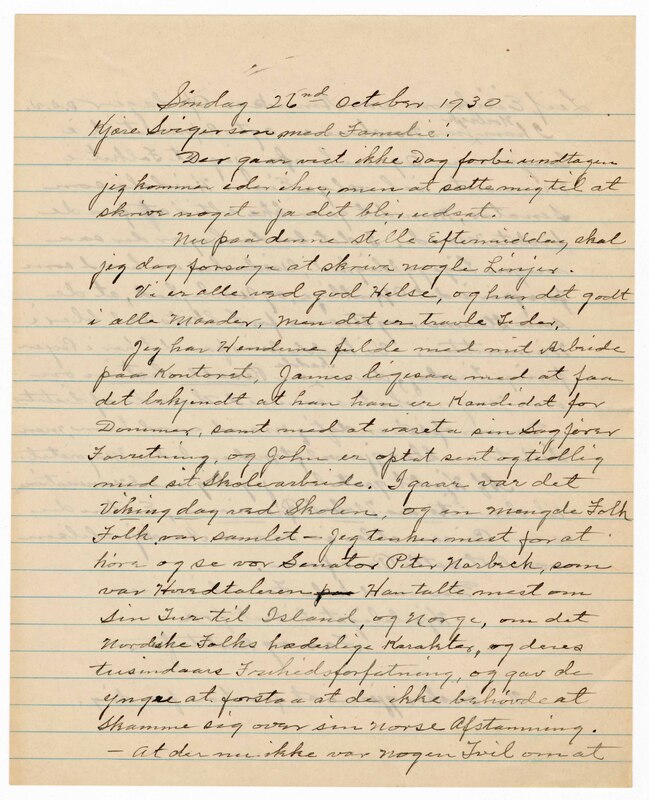 Søndag 26nd October 1930
Kjære Svigersøn med Familie!
Der gaar vist ikke Dag forbi undtagen
jeg kommer eder ihu, men at sætte mig til at
skrive noget ja det blir udsat.
Nu paa denne stille Eftermiddag skal
jeg dog forsøge at skrive nogle Linjer.
Vi er alle ved god Helse, og har det godt
i alle Maader, men det er travle Tider,
Jeg har Henderne fulde med mit Arbeide
paa Kontoret, James ligesaa med at faa
det bekjendt at han han er Kandidat for
Dommer, samt med at vareta sin Sagfører
Forretning, og John er optat sent og tidlig
med sit Skolearbeide. Igaar var det
Viking dag ved Skolen, og en mengde Folk
Folk var samlet – Jeg tenker mest for at
høre og se vor Senator Peter Norbeck, som
var Hovedtaleren Han talte mest om
sin Tur til Island, og Norge, om det
Nordiske Folks hæderlige Karakter, og deres
tusindaars Friheds forfatning, og gav de
yngre at forstaa at de ikke behøvde at
skamme sig over sin Norse Afstamning.
– At der nu ikke var nogen Tvil om at